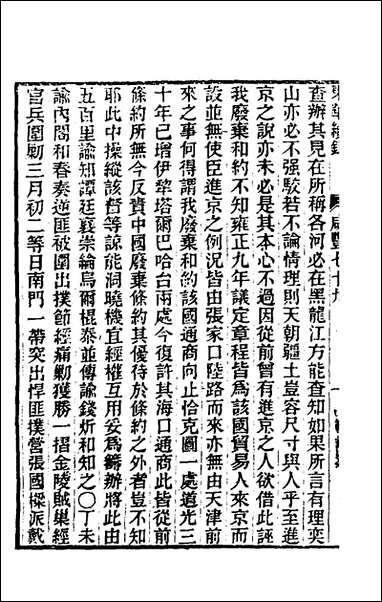 東華續錄 咸豐七十九
查辦其見在所稱各河必在黑龍江方能查知如果所言有理奕
山亦必不强駁若不論情理則天朝疆土豈容尺寸與人平至進
京之說亦未必是其本心不過因從前曾有進京之人欲借此誣
我廢棄和約不知雍正九年議定章程皆為該國貿易人來京而
設並無使臣進京之例況皆由張家口陸路而來亦無由天津前
來之事何得謂我廢棄和約該國通商向止恰克圖一處道光三
十年已增伊犂塔爾巴哈台兩處今復許其海口通商此皆從前
條約所無今反責中國廢棄條約其優待於條約之外者豈不知
耶此中操縱該督等諒能洞曉機宜經權互用妥為籌辦將此由
五百里諭知譚廷襄崇綸烏爾棍泰並傳諭錢炘和知之〇丁未
諭內閣和春奏逆匪被圍出撲節經痛勦獲勝一摺金陵賊巢經
官兵圍勦三月初二等日南門一帶突出悍匪撲營張國樑派戴